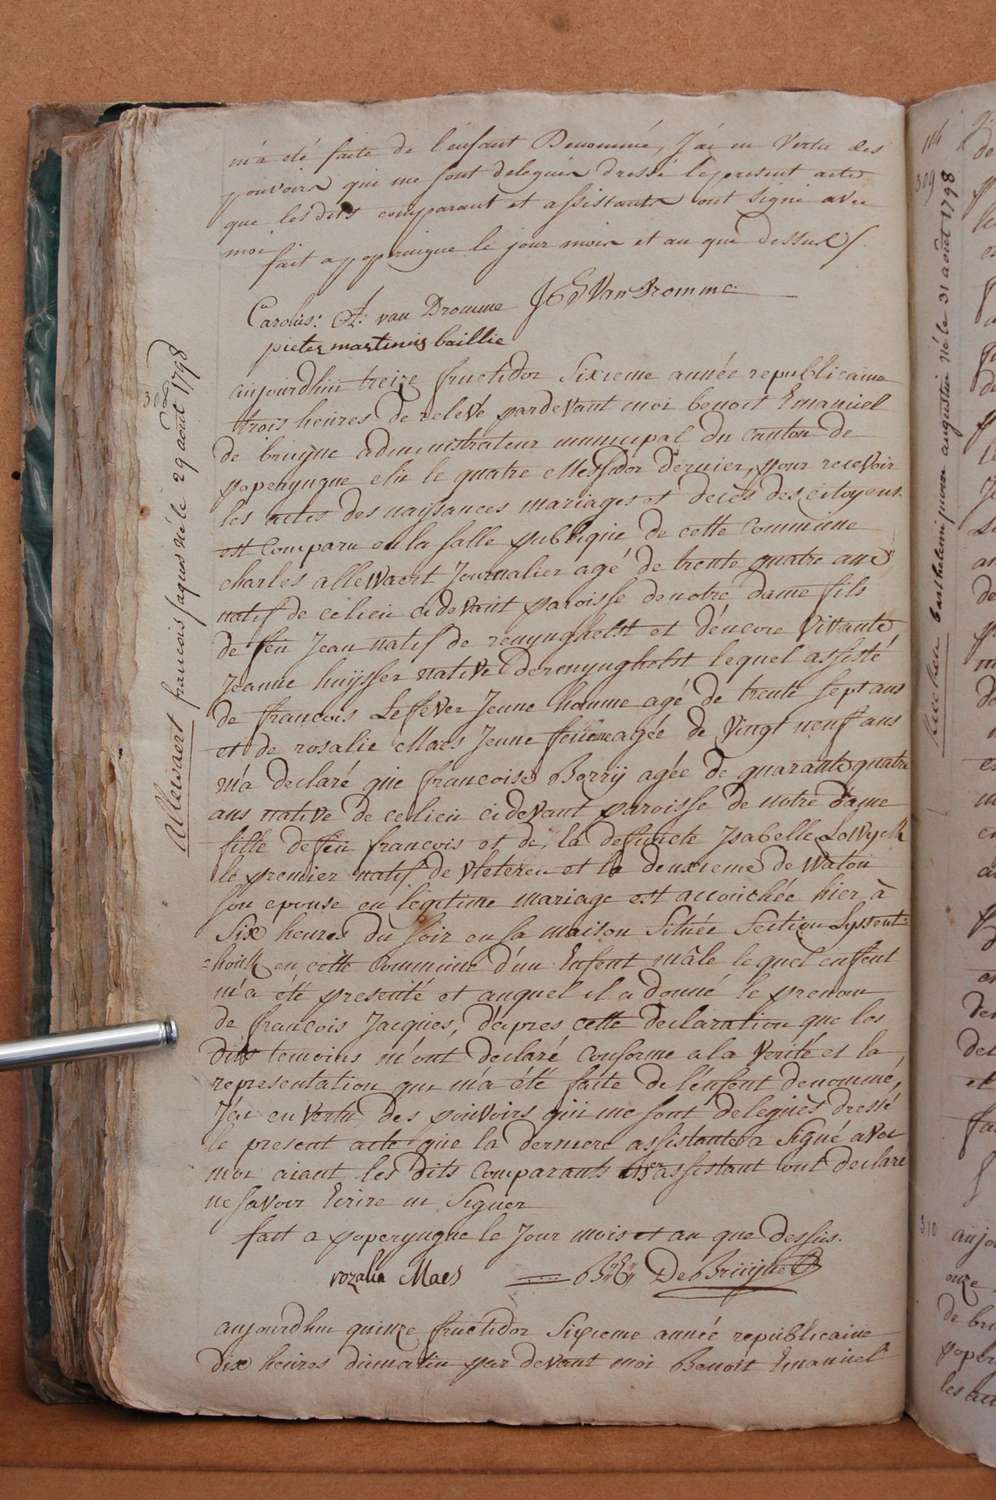 m'a été faite de l'enfant Denommé, J'ái en Vertu des
pouvoirs qui me sont deleguér dressé le present acte
que les dits comparant et assistants ont signé avec
moi
fait a poperingue le jour mois et an que dessus /.
Carolus: At: van Dromme J C D Van Dromme
pieter martinus baillie
aujourdhui treize fructidor Sixieme année republicaine
trois heures de relevé pardevant moi benoit Emanuel
de bruÿne administrateur municipal du canton de
poperyngue elu le quatre Messidor dernier, pour recevoir
les actes des naissances mariages et decès des citoyens
est comparu en la salle publique de cette commune
charles allewaert Journalier agé de trente quatre ans
natif de ce lieu ci devant paroisse de notre dame fils
de feu Jean natif de renynghelst et d'encore Vivante
Jeanne huÿsser native de renynghelst lequel assisté
de francois Lefever Jeune homme agé de trente sept ans
et de rosalie Maes Jeune femme agée de Vingt neuf ans
m'a declaré que francoise Berrÿ agée de quarante quatre
ans native de ce lieu ci devant paroisse de notre dame
fille de feu francois et de la defuncte Isabelle Lowyck
le premier natif de Vleteren et la deuxieme de Watou
son epouse en légitime mariage est accouchée hier à
Six heures du soir en sa maison Située Section Lyssent
-houck en cette Commune d'un Enfent mâle lequel enffent
m'a été presenté et auquel il a donné le prenom
de francois Jacques, d'apres cette declaration que les
dits temoins m'ont declaré Conforme a la Verité et la
representation qui m'a été faite de l'enfent denommé,
J'ai en vertu des pouvoirs qui me sont delegués dressé
le present acte que la derniere assistante a Signé avec
moi aiant les dits Comparants et assistant ont declaré
ne savoir Ecrire ni Signer
fait a poperyngue le Jour mois et an que dessus.
rozalia Maes B: E: DeBruijne
aujourdhui quinze fructidor Sixieme année republicaine
dix heures dumatin par devant moi Benoit Emanuel
308
Allewaert francois jaques né le 29 août 1798
114
309
barthelemi jean augustin né le 31 août 1798
310
aujou
onze
de bru
poper
les ac